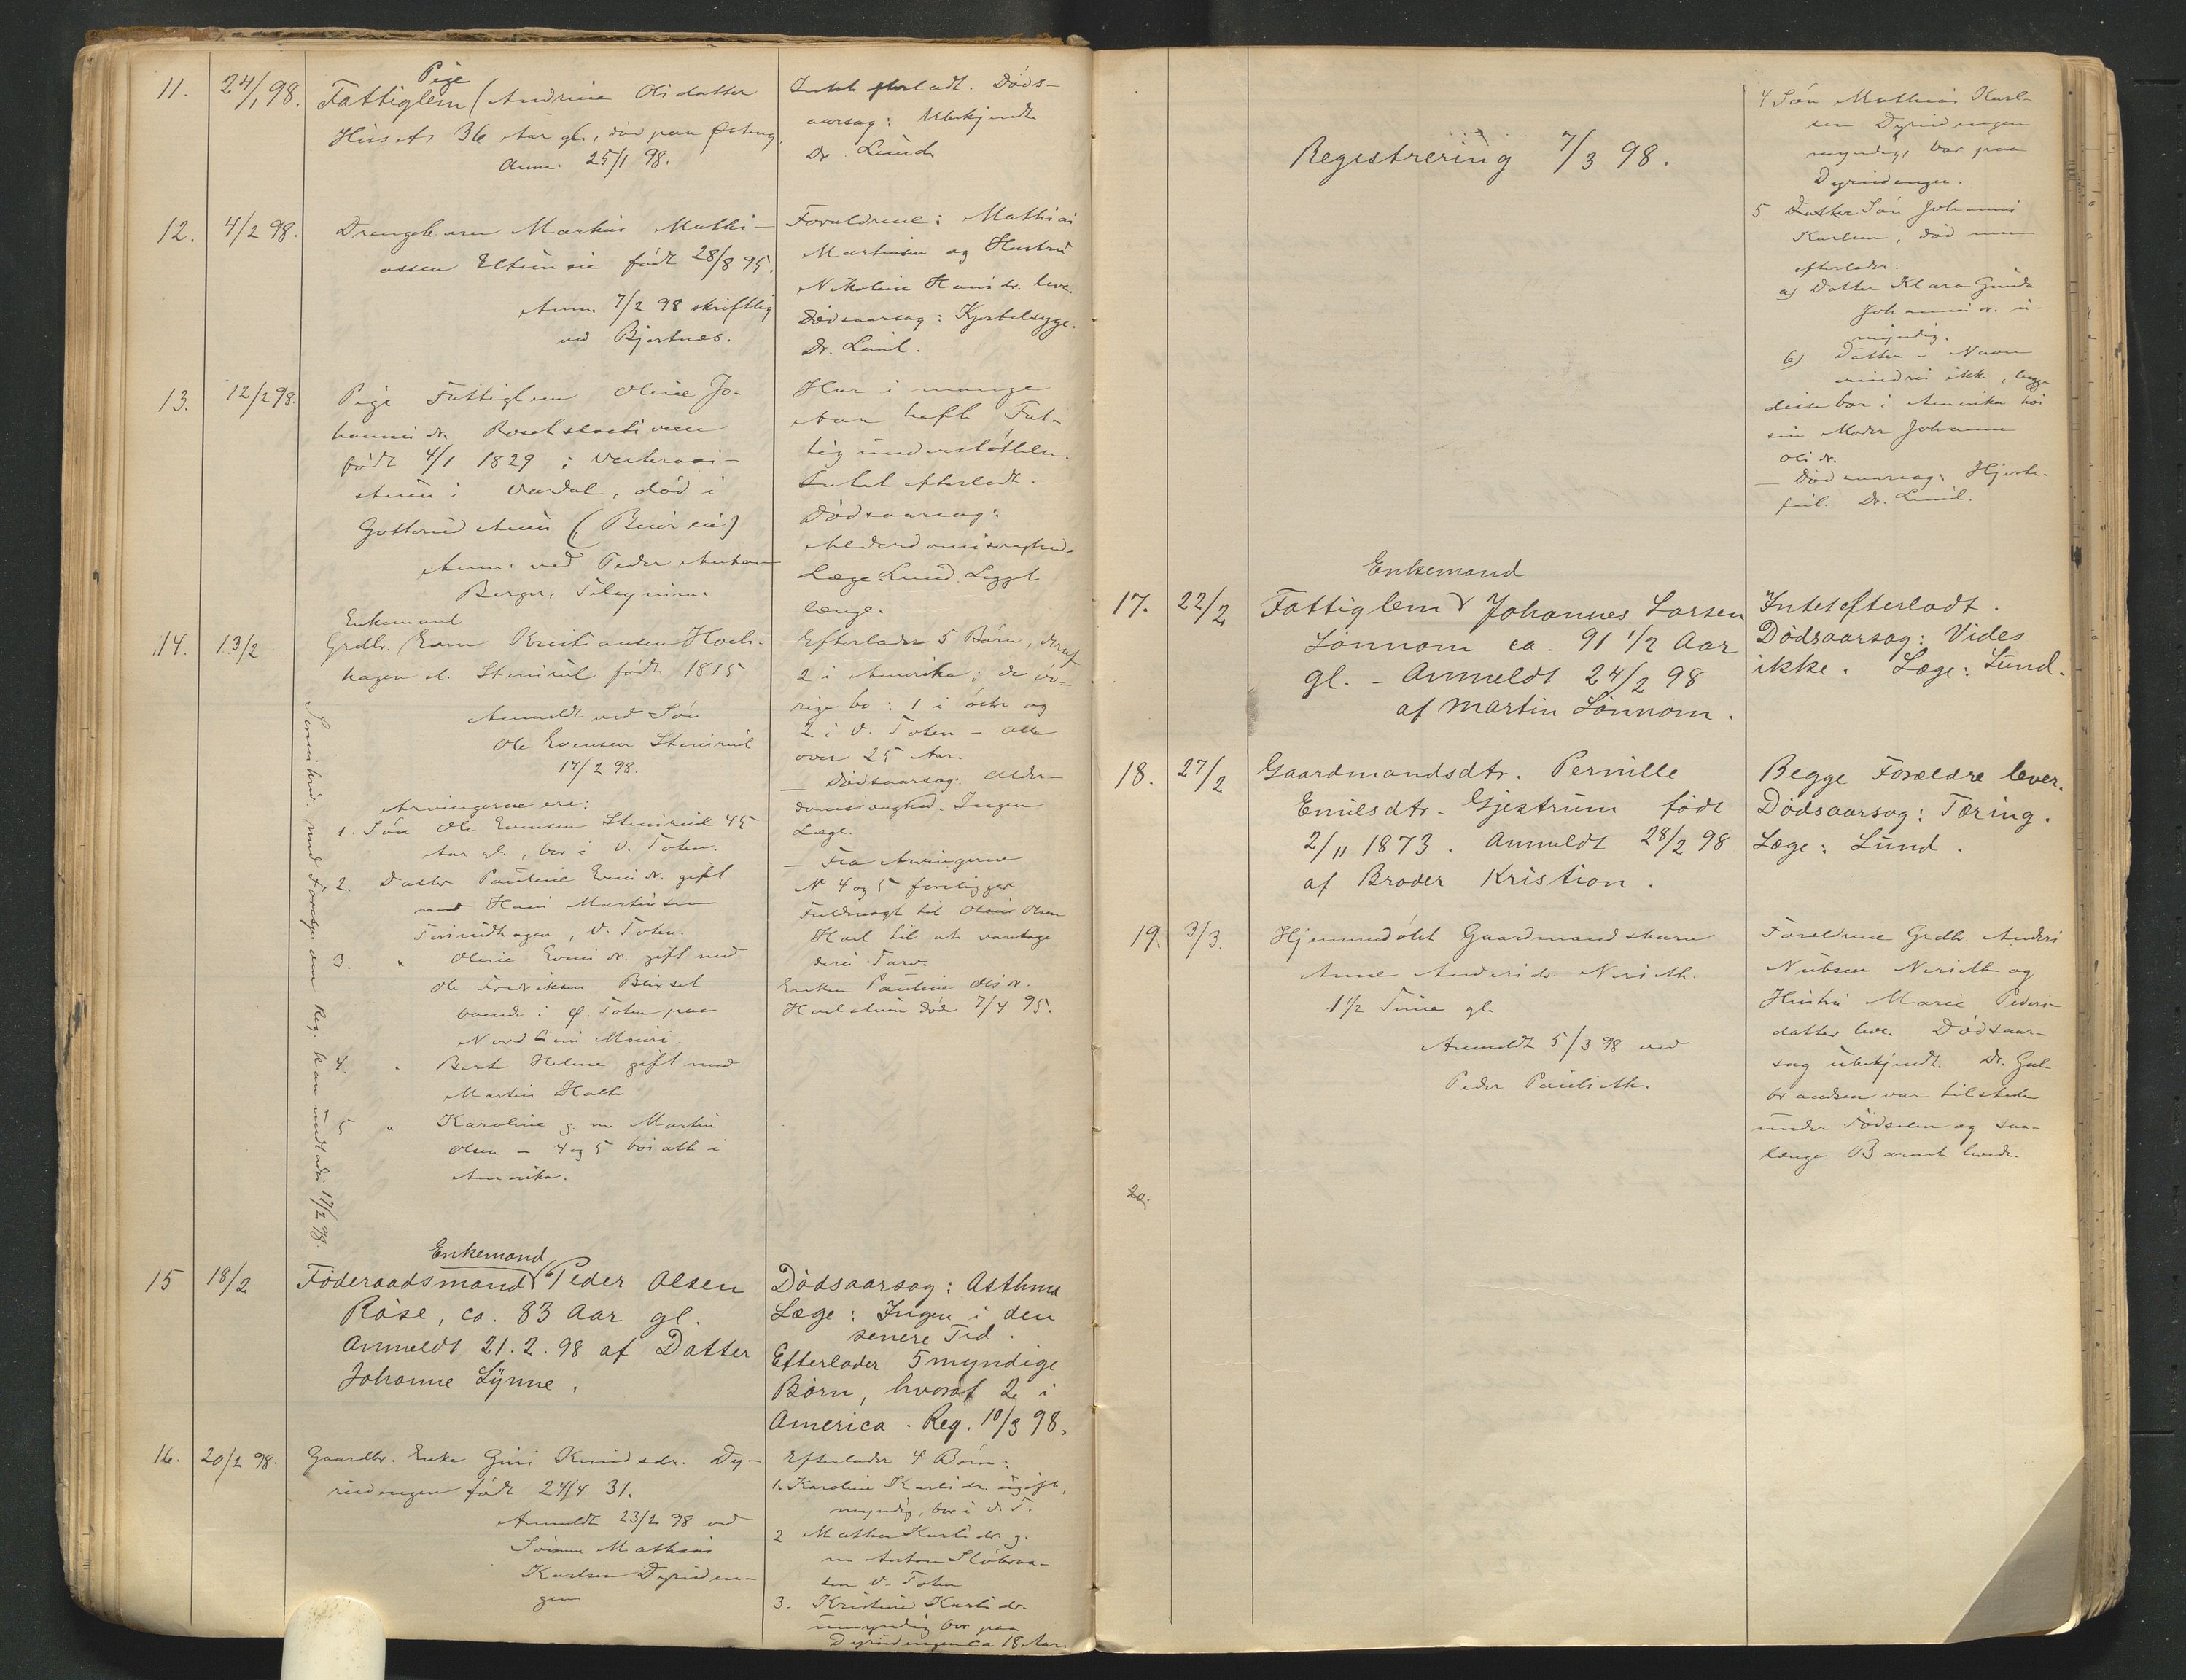 11. 24/1 98.
Pige
Fattiglem (Andrine Olsdatter
36 Aar gl., død paa
Anm. 25/1 98.
Intet efterladt. Døds-
aarsag: Ubekjendt
Dr. Lund
12. 4/2 98.
Drengebarn Markus Mathi-
assen født 28/8 95.
Anm. 7/2 98 skriftlig
ved Bjørtnes.
Forældrene: Mathias
Martinsen og Hustru
Nikoline Hansdr. lever.
Dødsaarsag: Kjertelsyge.
Dr. Lund.
13. 12/2 98.
Pige Fattiglem Oline Jo-
hannesdr.
født 4/1 1829 i
i Vardal, død i
Anm. ved Peder
Berger, Tilsynsm.
Har i mange
Aar havt Fat-
tigunderstøttelse.
Intet efterladt.
Dødsaarsag:
Alderdomssvaghed.
Læge Lund. Liggt
længe.
14. 13/2
Enkemand
Grdbr. Even Kristiansen
hagen el. Stensrud født 1815
Anmeldt ved Søn
Ole Evensen Stensrud
17/2 98.
Arvingerne ere:
1. Søn Ole Evensen Stensrud 45
Aar gl., bor i V. Toten.
2. Datter Pauline Evensdr. gift
med Hans Martinsen
V. Toten.
3. " Oline Evensdr. gift med
Ole Fredriksen
boende i Ø. Toten paa
4. " Bert Helene gift med
Martin Holte
5 " Karoline g. m. Martin
Olsen – 4 og 5 bosatte i
Amerika.
Reg. kan undlades 17/2 98.
Efterlader 5 Børn, deraf
2 i Amerika; de øv-
rige bo: 1 i Østre og
2 i V. Toten – alle
over 25 Aar.
— Dødsaarsag: Alder-
domssvaghed. Ingen
Læge.
— Fra Arvingerne
N 4 og 5 foreligger
Fuldmagt til Olaus Olsen
til at varetage
deres Tarv.
Enken Pauline Olsdr.
døde 7/4 95.
15 18/2
Enkemand
Føderaadsmand Peder Olsen
Røise, ca. 83 Aar gl.
Anmeldt 21.2.98 af Datter
Johanne Lynne.
Dødsaarsag: Asthma
Læge: Ingen i den
senere Tid.
Efterlader 5 myndige
Børn, hvoraf 2 i
America. Reg. 10/3 98.
16. 20/2 98.
Gaardbr. Enke Guri Knudsdr. Dy-
rudengen født 24/4 31.
Anmeldt 23/2 98 ved
Sønnen Mathias
Karlsen Dyruden-
gen
Efterlader 4 Børn:
1. Karoline Karlsdr. ugift,
myndig, bor i V. T.
2 Mathea Karlsdr. g.
m Anton
V. Toten
3. Kristine Karlsdr.
umyndig bor paa
Dyrudengen ca 18 Aar
Registrering 7/3 98.
4 Søn Mathias Karl-
sen Dyrudengen
myndig, bor paa
Dyrudengen.
5 Datter Søn Johannes
Karlsen, død men
efterlader:
a) Datter Klara Gunda
Johannesdr. u-
myndig.
b) Datter – Navn
erindres ikke, begge
disse bor i Amerika hos
sin Moder Johanne
Olsdr.
— Dødsaarsag: Hjerte-
feil. Dr. Lund.
17. 22/2
Enkemand
Fattiglem Johannes Larsen
Lønnom ca. 91 1/2 Aar
gl. – Anmeldt 24/2 98
af Martin Lønnom.
Intet efterladt.
Dødsaarsag: Vides
ikke. Læge: Lund.
18. 27/2
Gaardmandsdtr. Pernille
Emilsdtr. Gjestrum født
2/11 1873. Anmeldt 28/2 98
af Broder Kristian.
Begge Forældre lever.
Dødsaarsag: Tæring.
Læge: Lund.
19. 3/3.
Hjemmedøbt Gaardmandsbarn
Anne Andersdr.
1 1/2 Time gl
Anmeldt 5/3 98 ved
Peder
Forældrene Grdbr. Anders
og
Hustru Marie Peders-
datter lever. Dødsaar-
sag ubekjendt. Dr. Gul-
brandsen var tilstede
under Fødselen og saa-
længe Barnet levede.
20.